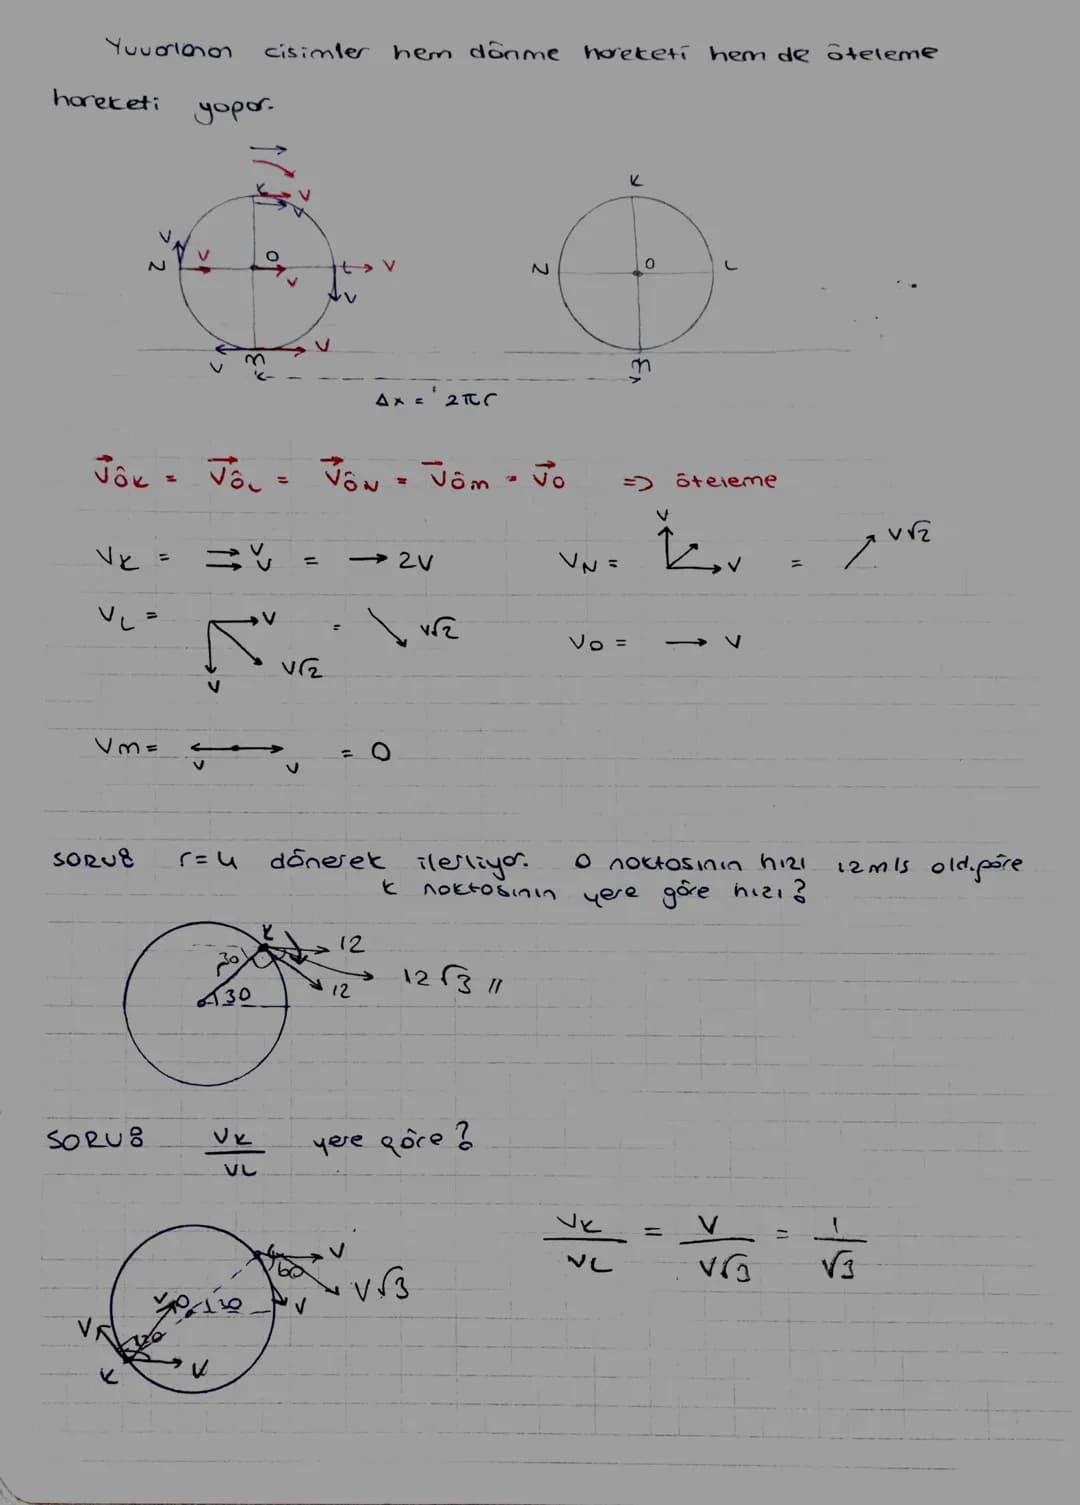 Yuvarlanan cisimler hem dönme hareketi hem de öteleme
hareketi yapar.
K V
V
V
N V O V L V
V
V M V
Δx = 2πr
K
N O L
M
VÖK = VÖL = VÖN = VÖM = VO => öteleme
VK = V V = → 2V
VN = V V = V√2
VL = V V V√2 = V√2
VO = → V
VM = V V = 0
SORU: r=4 dönerek ilerliyor. O noktasının hızı 12 m/s old. göre
K noktasının yere göre hızı?
K 12
30
12√3 //
30 12
SORU: VK/VL yere göre?
L V
60
V√3
30 V
V 120
K V
VK/VL = V/V√3 = 1/√3